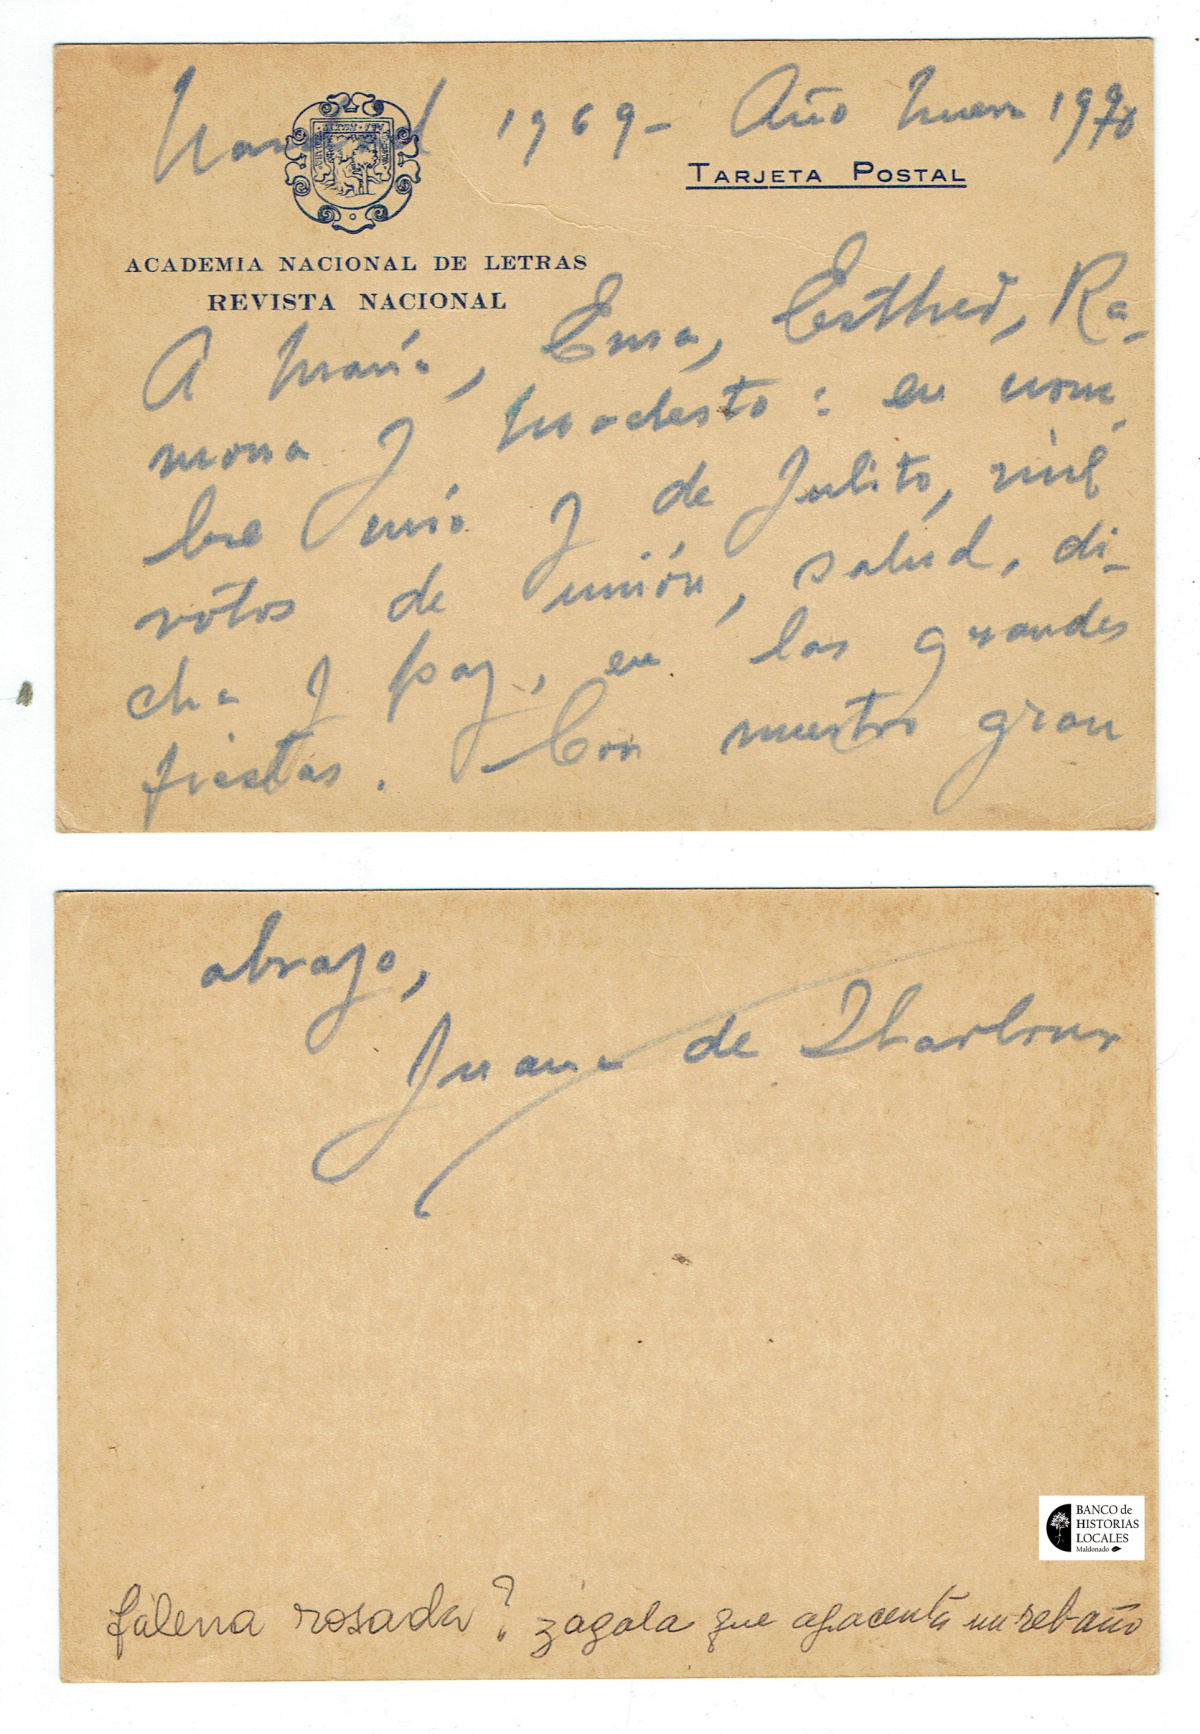 Navidad 1969 - Año Nuevo 1970
TARJETA POSTAL
ACADEMIA NACIONAL DE LETRAS
REVISTA NACIONAL
A María, Ema, Esther, Ra-
mona y Modesto: en nom-
bre mío y de Julito, mil
votos de unión, salud, di-
cha y paz, en las grandes
fiestas. Con nuestro gran
abrazo,
Juana de Ibarbourou
BANCO de
HISTORIAS
LOCALES
Maldonado
fálena rosada? zagala que apacenta un rebaño